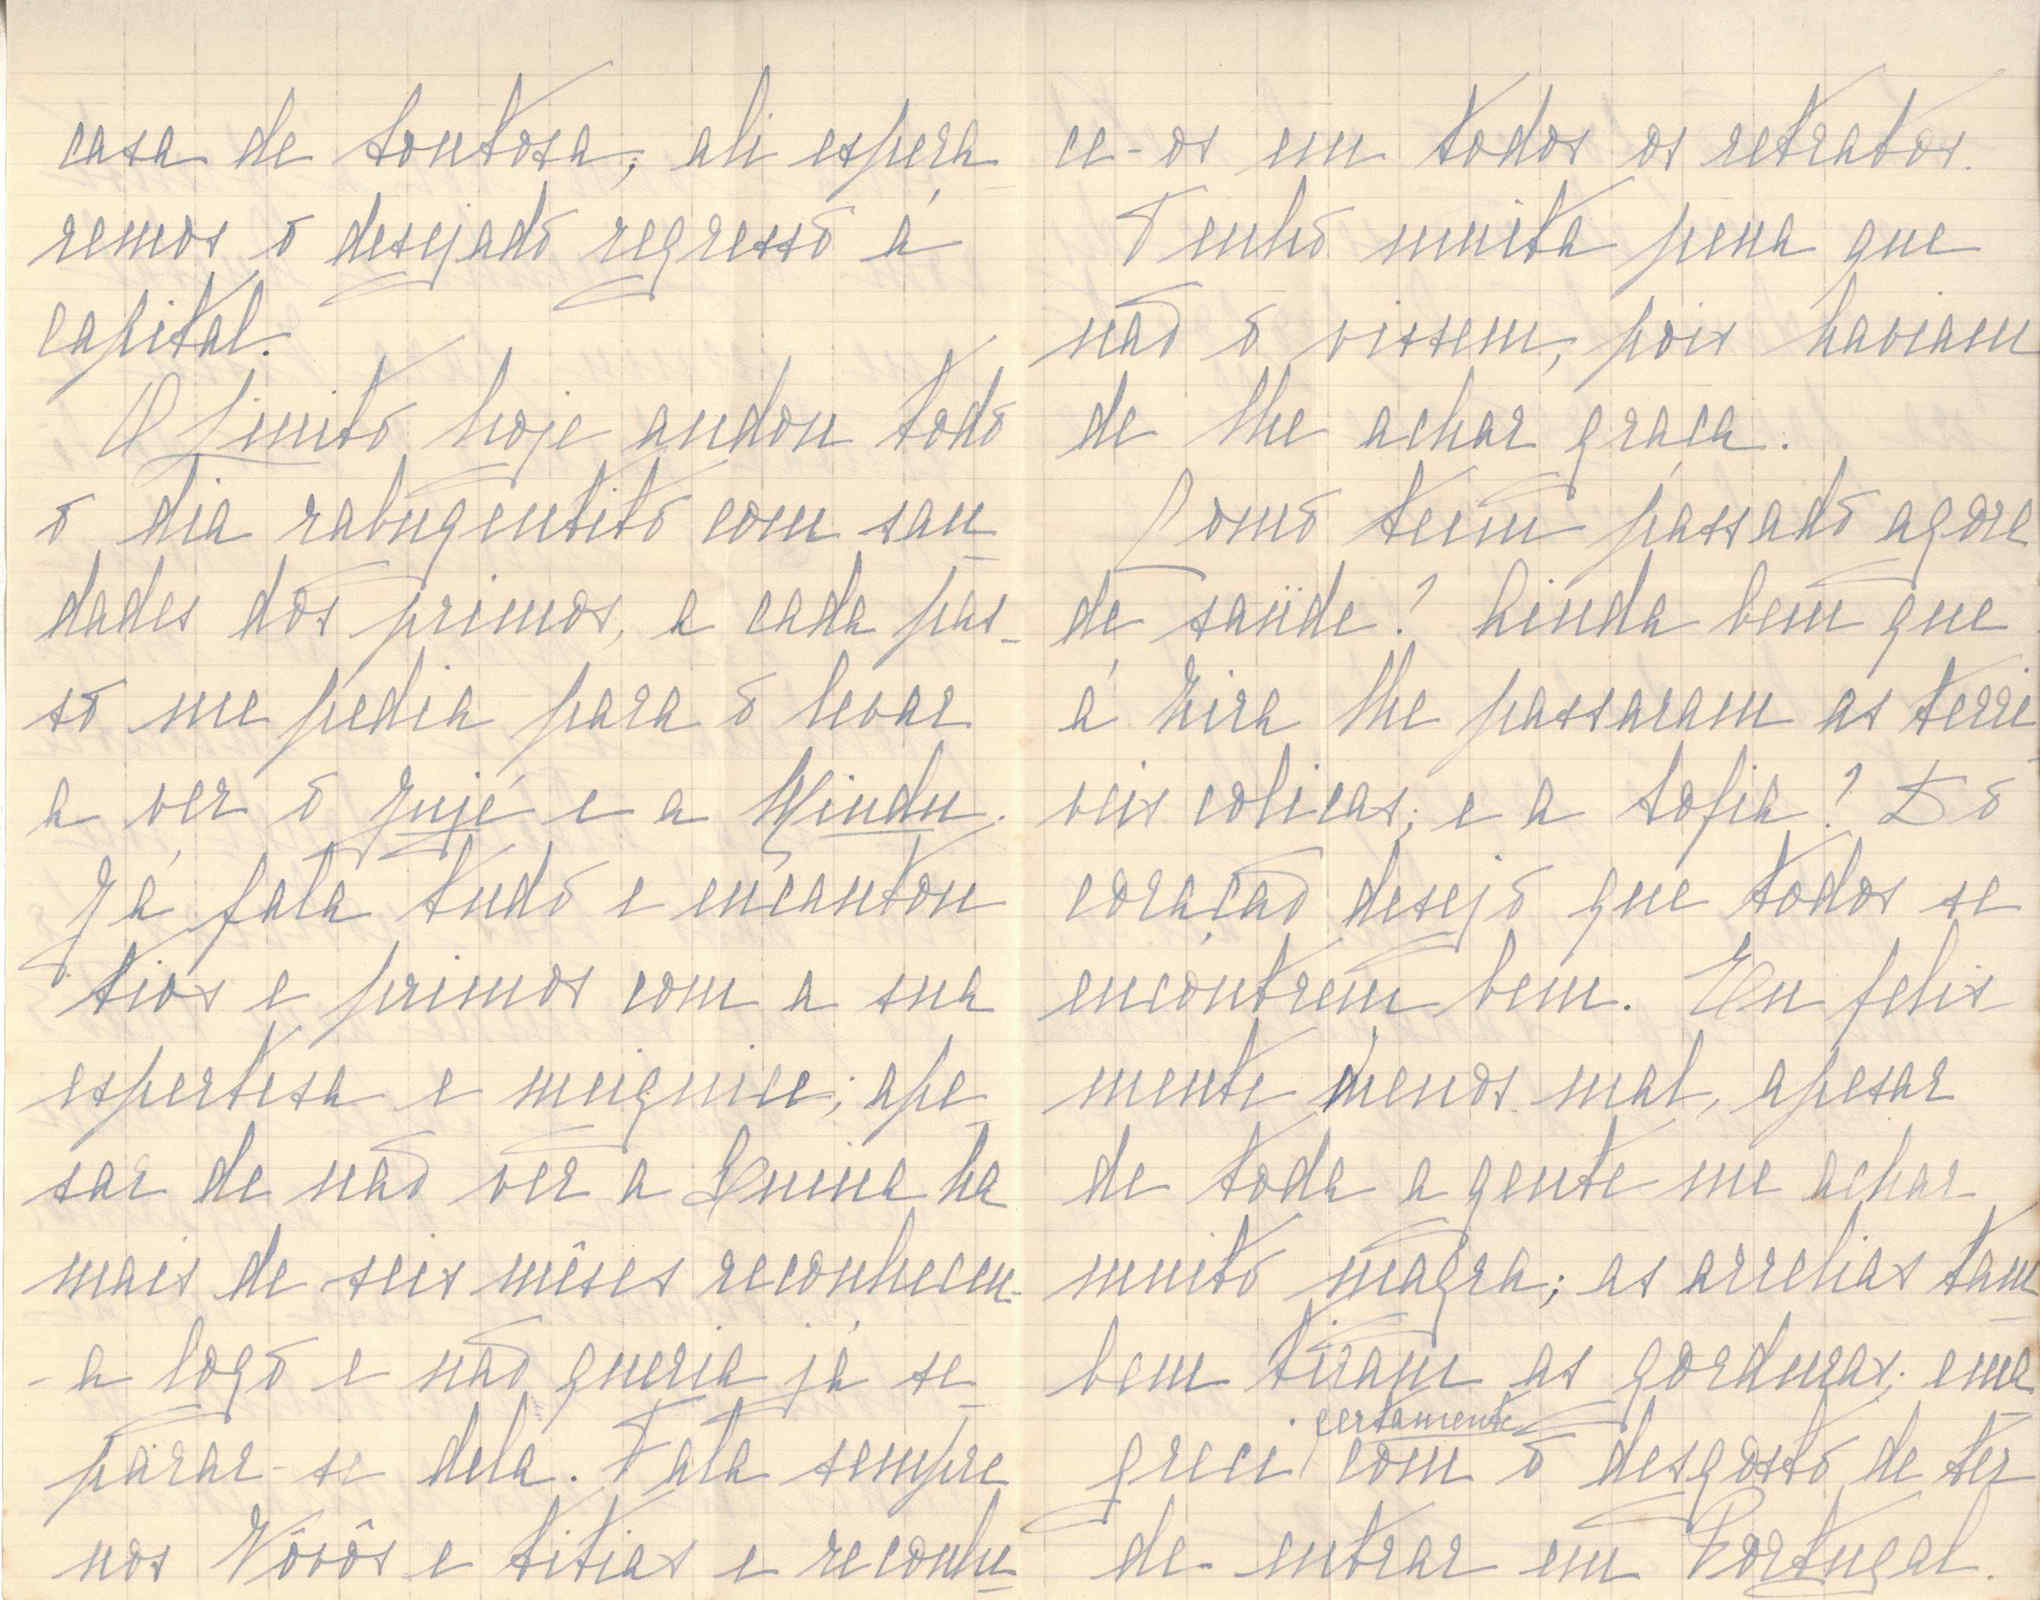 casa de Sontosa; ali espera
remos o desejado regresso á
capital.
O Limito hoje andou todo
o dia rabugentito com sau
dades dos primos, a cada pas-
so me pedia para o levar
a ver o Jujé e a Mindu.
Já fala tudo e encantou
tios e primos com a sua
espertesa e meiguice; ape
sar de não ver a Enina ha
mais de seis mêses reconheceu-
-a logo e não queria já se
parar-se dela. Fala sempre
nos Vôvôs e titias e reconhe
ce-os em todos os retratos.
Tenho muita pena que
não o vissem, pois haviam
de lhe achar graça.
Como teem passado agora
de saüde? Ainda bem que
á Zira lhe passaram as terri
veis colicas; e a Sofia? Do
coração desejo que todos se
encontrem bem. Eu felis
mente menos mal, apesar
de toda a gente me achar
muito magra; as arrelias tam
bem tiram as gorduras; ema
certamente
greci com o desgosto de ter
de entrar em Portugal.